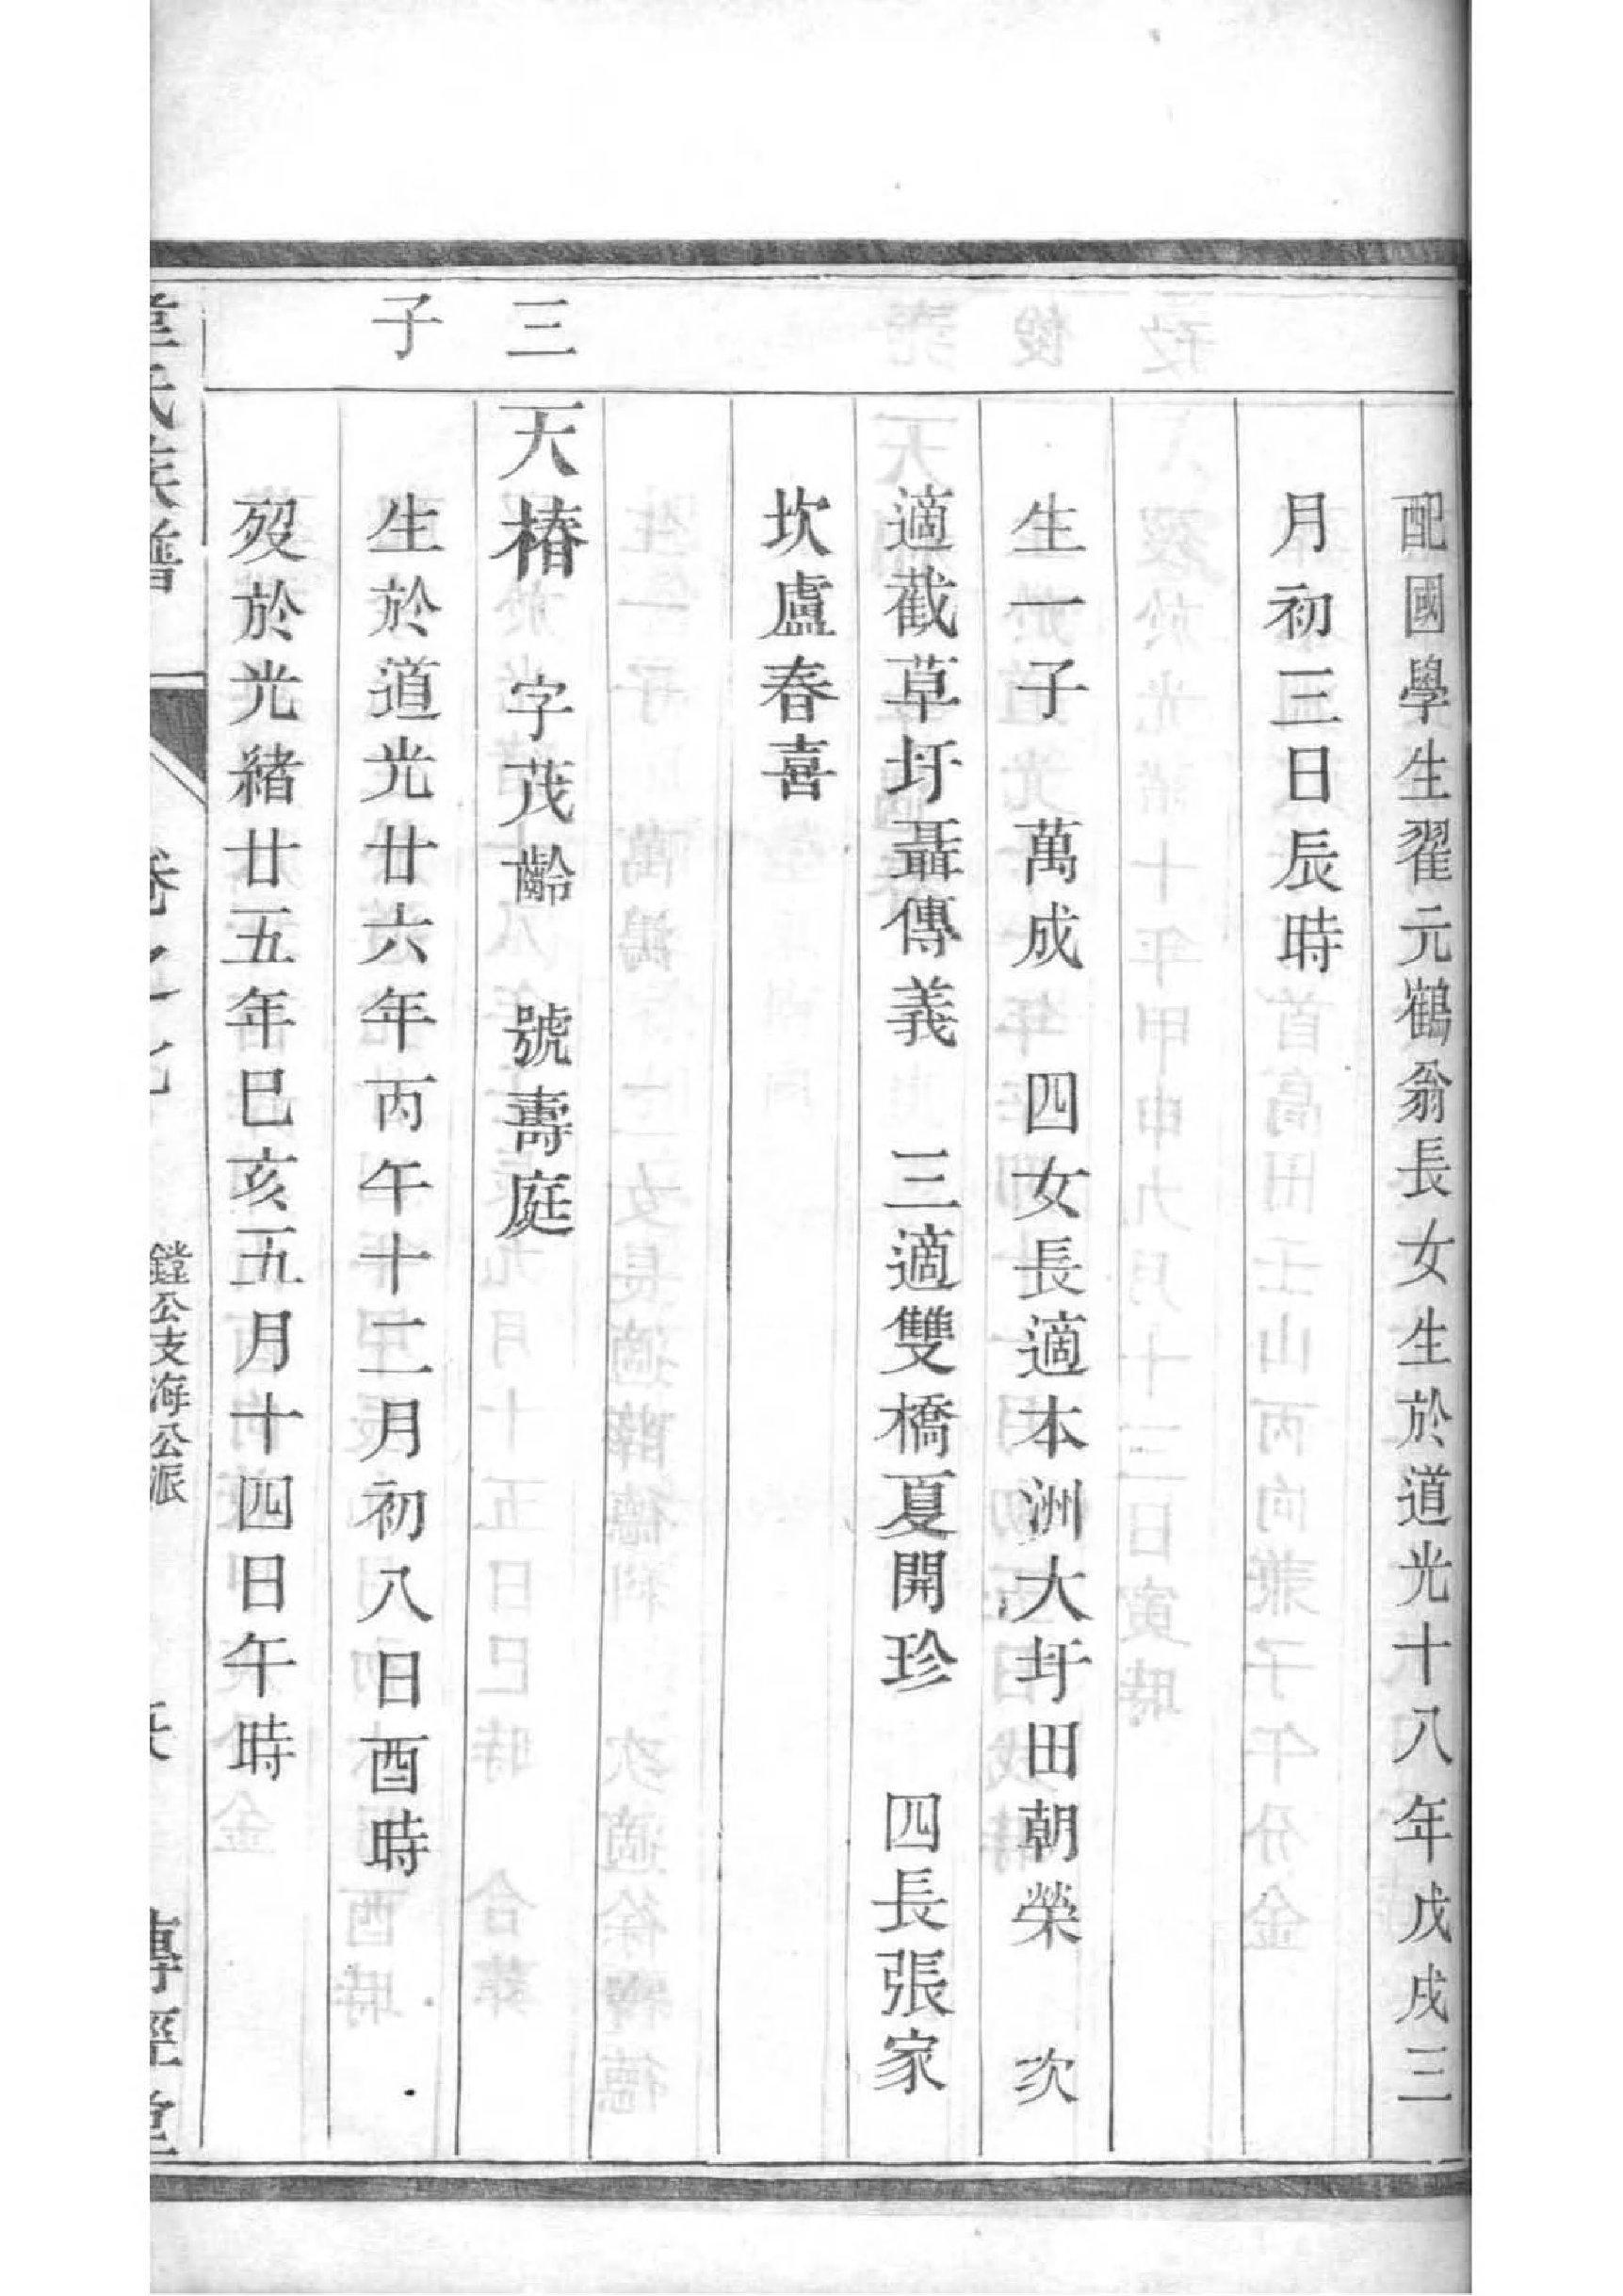 配國學生翟元鶴翁長女生於道光十八年戊戌三
月初三日辰時
生一子萬成 四女長適本洲大圩田朝榮 次
適截草圩聶傳義 三適雙橋夏開珍 四長張家
坎盧春喜
三子
天椿 字茂齡 號壽庭
生於道光廿六年丙午十二月初八日酉時
歿於光緒廿五年巳亥五月十四日午時
氏族譜
卷之
鏜公支海公派
傳經堂